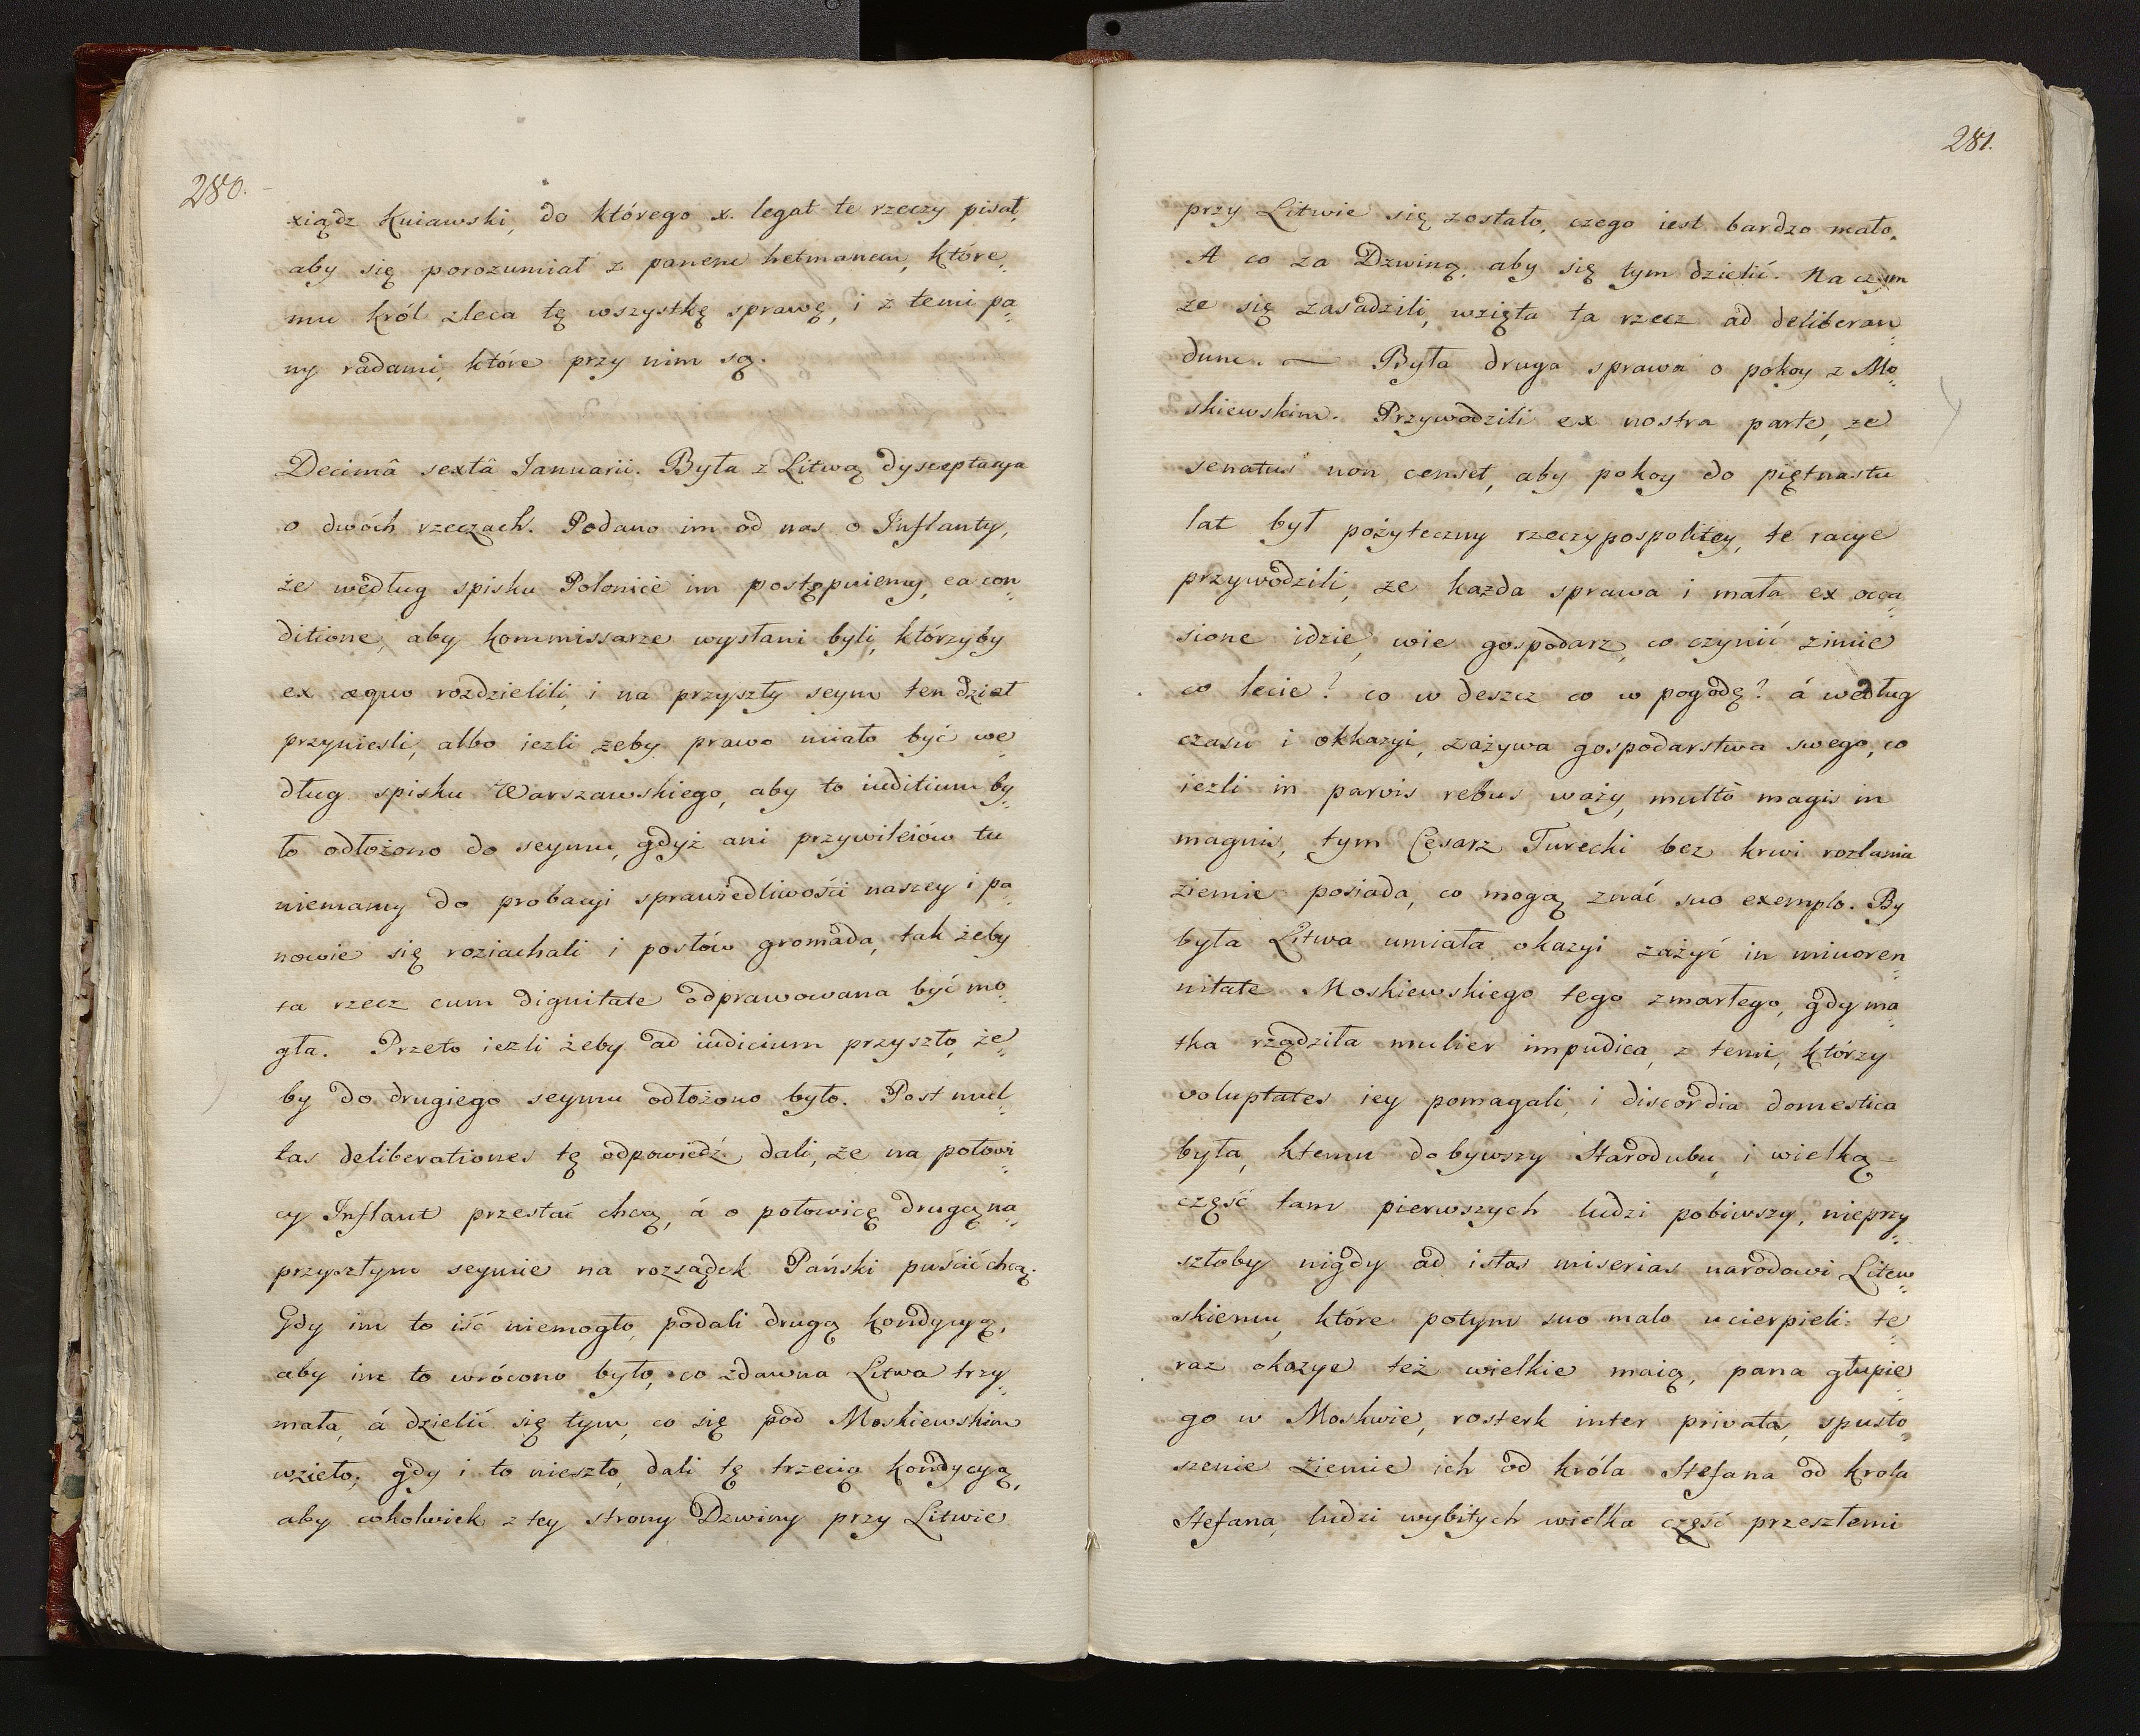 280.
xiądz Kuiawski, do którego x. legat te rzeczy pisał,
aby się porozumiał z panem hetmanem, które„
mu król zleca tę wszystkę sprawę, i z temi pa„
ny radami, które przy nim są.
Decimâ sextâ Januarii. Była z Litwą dysceptacya
o dwóch rzeczach. Podano im od nas o Inflanty,
że według spisku Polonice im postępuiemy, ea con„
ditione, aby kommissarze wysłani byli, którzyby
ex æquo rozdzielili, i na przyszły seym ten dział
przyniesli, albo iezli żeby prawo miało być we
dług spisku Warszawskiego, aby to iuditium by„
ło odłożono do seymu, gdyż ani przywileiów tu
niemamy do probacyi sprawiedliwości naszey i pa„
nowie się roziachali i posłów gromada, tak żeby
ta rzecz cum dignitate odprawowana być mo„
gła. Przeto iezli żeby ad iudicium przyszło, że„
by do drugiego seymu odłożono było. Post mul„
tas deliberationes tę odpowiedź dali, że na połowi„
cy Inflant przestać chcą, á o połowicę drugą na„
przyszłym seymie na rozsądek Pański puścić chcą.
Gdy im to iść niemogło, podali drugą kondycyą,
aby im to wrócono było, co zdawna Litwa trzy„
mała, á dzielić się tym, co się pod Moskiewskim
wzięło; gdy i to nieszło, dali tę trzecią kondycyą,
aby cokolwiek z tey strony Dzwiny przy Litwie
281.
przy Litwie się zostało, czego iest bardzo mało.
A co za Dzwiną, aby się tym dzielić. Na czym
że się zasadzili, wzięta ta rzecz ad deliberan„
dum. — Była druga sprawa o pokoy z Mo„
skiewskim. Przywodzili ex nostra parte, że
senatus non censet, aby pokoy do piętnastu
lat był pożyteczny rzeczypospolitey, te racye
przywodzili, że każda sprawa i mała ex occa„
sione idzie, wie gospodarz, co czynić zimie
co lecie? co w deszcz co w pogodę? á według
czasu i okkazyi, zażywa gospodarstwa swego, co
iezli in parvis rebus waży, multò magis in
magnis, tym Cesarz Turecki bez krwi rozlania
ziemie posiada, co mogą znać suo exemplo. By
była Litwa umiała okazyi zażyć in minoren„
nitate Moskiewskiego tego zmarłego, gdy ma„
tka rządziła mulier impudica, z temi, którzy
voluptates iey pomagali, i discordia domestica
była, ktemu dobywszy Starodubu, i wielką
część tam pierwszych ludzi pobiwszy, nieprzy„
szłoby nigdy ad istas miserias narodowi Litew„
skiemu, które potym suo malo ucierpieli: te„
raz okazye też wielkie maią, pana głupie„
go w Moskwie, rosterk inter privata, spusto„
szenie ziemie ich od króla Stefana od krola
Stefana, ludzi wybitych wielka część przeszłemi